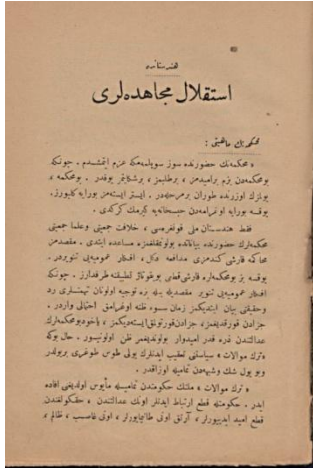 هندستانده
استقلال مجاهده‌لری
محكمه‌نك ماهیتی :
« محكمه‌نك حضورنده سوز سویلمه‌مكه عزم ایتمشدم . چونكه
بو محكمه‌دن بزم نه امیدمز ، نه طلبمز ، نه شكایتمز یوقدر . بو محكمه ،
یولمزك اوزرنده طوران بر مرحله‌در . ایستر ایسته‌مز بورایه كلیورز .
یوقسه بورایه اوغرامه‌دن حبسخانه‌یه كیرمك كركدی .
فقط هندستان ملی قونغره‌سی ، خلافت جمعیتی وعلما جمعیتی
محكمه‌لرك حضورنده بیاناتده بولونمقلغمزه مساعده ایتدی . مقصدمز
محاكمه قارشی كندمزی مدافعه دكل ، افكار عمومیه‌یی تنویردر .
یوقسه بز بو محكمه‌لره قارشی قطعی بویقوتاژ تطبیقنه طرفدارز . چونكه
افكار عمومیه‌یی تنویر مقصدیله بیله بزه توجیه اولونان تهمتلری رد
وحقیقتی بیان ایتدیكمز زمان سوء ظنه اوغرامق احتمالی واردر .
جزادن قورقدیغمز ، جزادن قورتولمق ایسته‌دیكمز ، یاخود بو محكمه‌لرك
عدالتندن ذره قدر امیدوار بولوندیغمز ظن اولونیور . حال بوكه
« ترك موالات » سیاستنی تعقیب ایدنلرك یولی طوس طوغری بر یولدر
وبو یول شك وشبهه‌دن تمامیله اوزاقدر .
« ترك موالات » ملتك حكومتدن تمامیله مأیوس اولدیغنی افاده
ایدر . حكومتله قطع ارتباط ایدنلر اونك عدالتندن ، حقكولغندن
قطع امید ایدییورلر ، آرتق اونی طانیمایورلر ، اونی غاصب ، ظالم ،